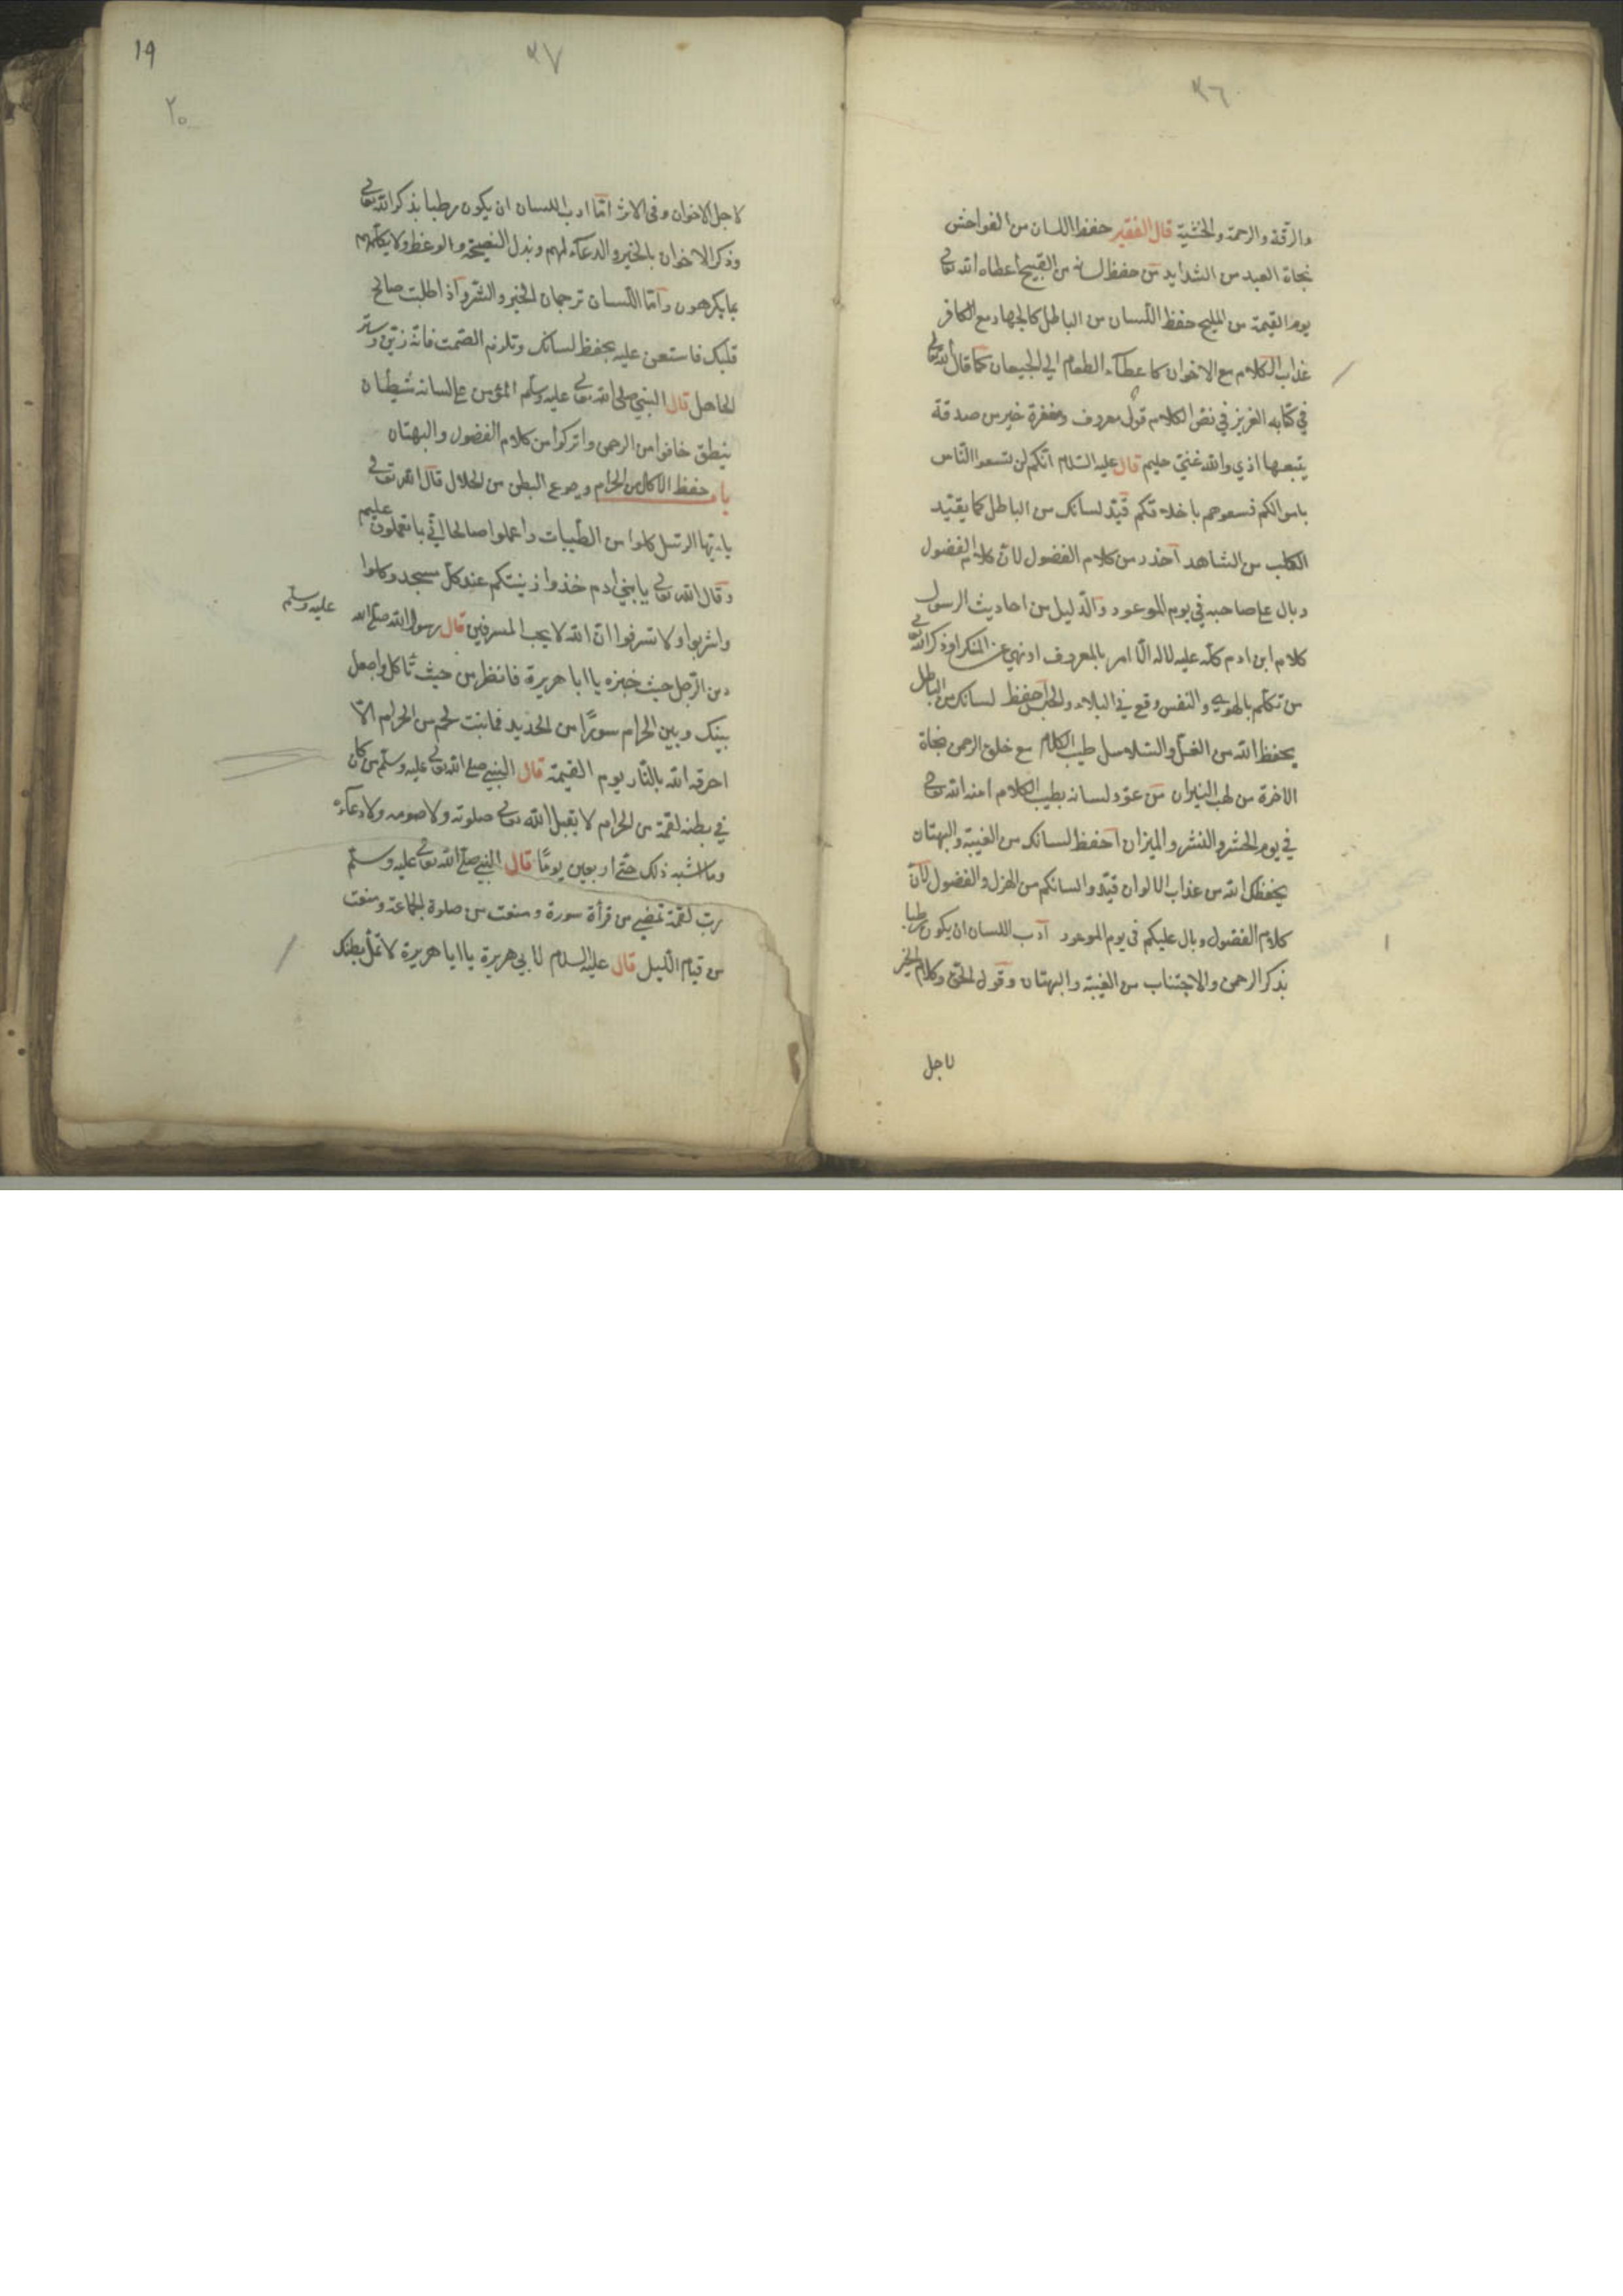 ٣٦
والرقة والرحمة والخشية قال الفقير حفظ اللسان من الفواحش
نجاة العبد من الشدايد من حفظ لسانه من القبيح اعطاه الله تعالى
يوم القيمة من المليح حفظ اللسان من الباطل كالجهاد مع الكافر
عذاب الكلام مع الاخوان كاعطآء الطعام الي الجيعان كما قال الله تعالى
في كتابه العزيز في نص الكلام قول معروف ومغفرة خير من صدقة
يتبعها اذي والله غني حليم قال عليه السلام انكم لن تسعوا الناس
باموالكم فسعوهم باخلاقكم قيد لسانك من الباطل كما يقيد
الكلب من الشاهد احذر من كلام الفضول لان كلام الفضول
وبال على صاحبه في يوم الموعود والدليل من احاديث الرسول
كلام ابن ادم كله عليه لا له الا امر بالمعروف او نهي عن المنكر او ذكر الله تعالى
من تكلم بالهوي والنفس وقع في البلاء والحبس احفظ لسانك من الباطل
يحفظ الله من الغل والسلاسل طيب الكلام مع خلق الرحمن نجاة
الاخرة من لهب النيران من عود لسانه بطيب الكلام امنه الله تعالى
في يوم الحشر والنشر والميزان احفظ لسانك من الغيبة والبهتان
يحفظك الله من عذاب الالوان قيدوا السانكم من الهزل والفضول لان
كلام الفضول وبال عليكم في يوم الموعود ادب اللسان ان يكون رطبا
بذكر الرحمن والاجتناب من الغيبة والبهتان وقول الحق وكلام الخير
لاجل
١٩
٣٧
٢٠
لاجل الاخوان وفي الاثر اما ادب اللسان ان يكون رطبا بذكر الله تعالى
وذكر الاخوان بالخير والدعآء لهم وبذل النصيحة والوعظ ولا يكلمهم
بما يكرهون واما اللسان ترجمان الخير والشر واذا طلبت صالح
قلبك فاستعن عليه بحفظ لسانك وتلزم الصمت فانه زين وستر
الجاهل قال النبي صلى الله تعالى عليه وسلم المؤمن على لسانه شيطان
ينطق خافوا من الرحمن واتركوا من كلام الفضول والبهتان
باب حفظ الاكل من الحرام وجوع البطن من الحلال قال الله تعالى
يا ايها الرسل كلوا من الطيبات واعملوا صالحا اني بما تعملون عليم
وقال الله تعالى يا بني ادم خذوا زينتكم عند كل مسجد وكلوا
واشربوا ولا تسرفوا ان الله لا يحب المسرفين قال رسول الله صلى الله عليه وسلم
دين الرجل حيث خبزه يا ابا هريرة فانظر من حيث تاكل واجعل
بينك وبين الحرام سورا من الحديد فما نبت لحم من الحرام الا
احرقه الله بالنار يوم القيمة قال النبي صلى الله تعالى عليه وسلم من كان
في بطنه لقمة من الحرام لا يقبل الله تعالى صلوته ولا صومه ولا دعآءه
وما اشبه ذلك حتى اربعين يوما قال النبي صلى الله تعالى عليه وسلم
رب لقمة تمضي من قرأة سورة ومنعت من صلوة الجماعة ومنعت
من قيام الليل قال عليه السلام لابي هريرة يا ابا هريرة لا تملأ بطنك